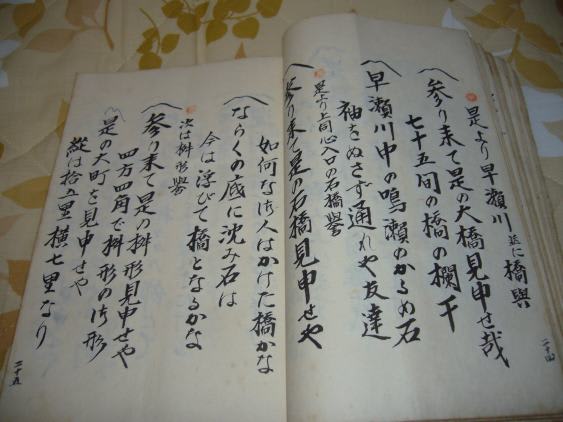 是より早瀬川並に橋與
参り来て是の大橋見申せ哉
七十五間の橋の欄干
早瀬川中の鳴瀬のかるめ石
袖をぬさず通れや友達
是より上同心入口の石橋與
参り来て是の石橋見申せや
如何な御人はかけた橋かな
ならくの底に沈み石は
今は浮びて橋となるかな
次は桝形與
参り来て是の桝形見申せや
四方四角で桝形の御形
是の大町を見申せや
縦は拾五里横七里なり
二十四
二十五